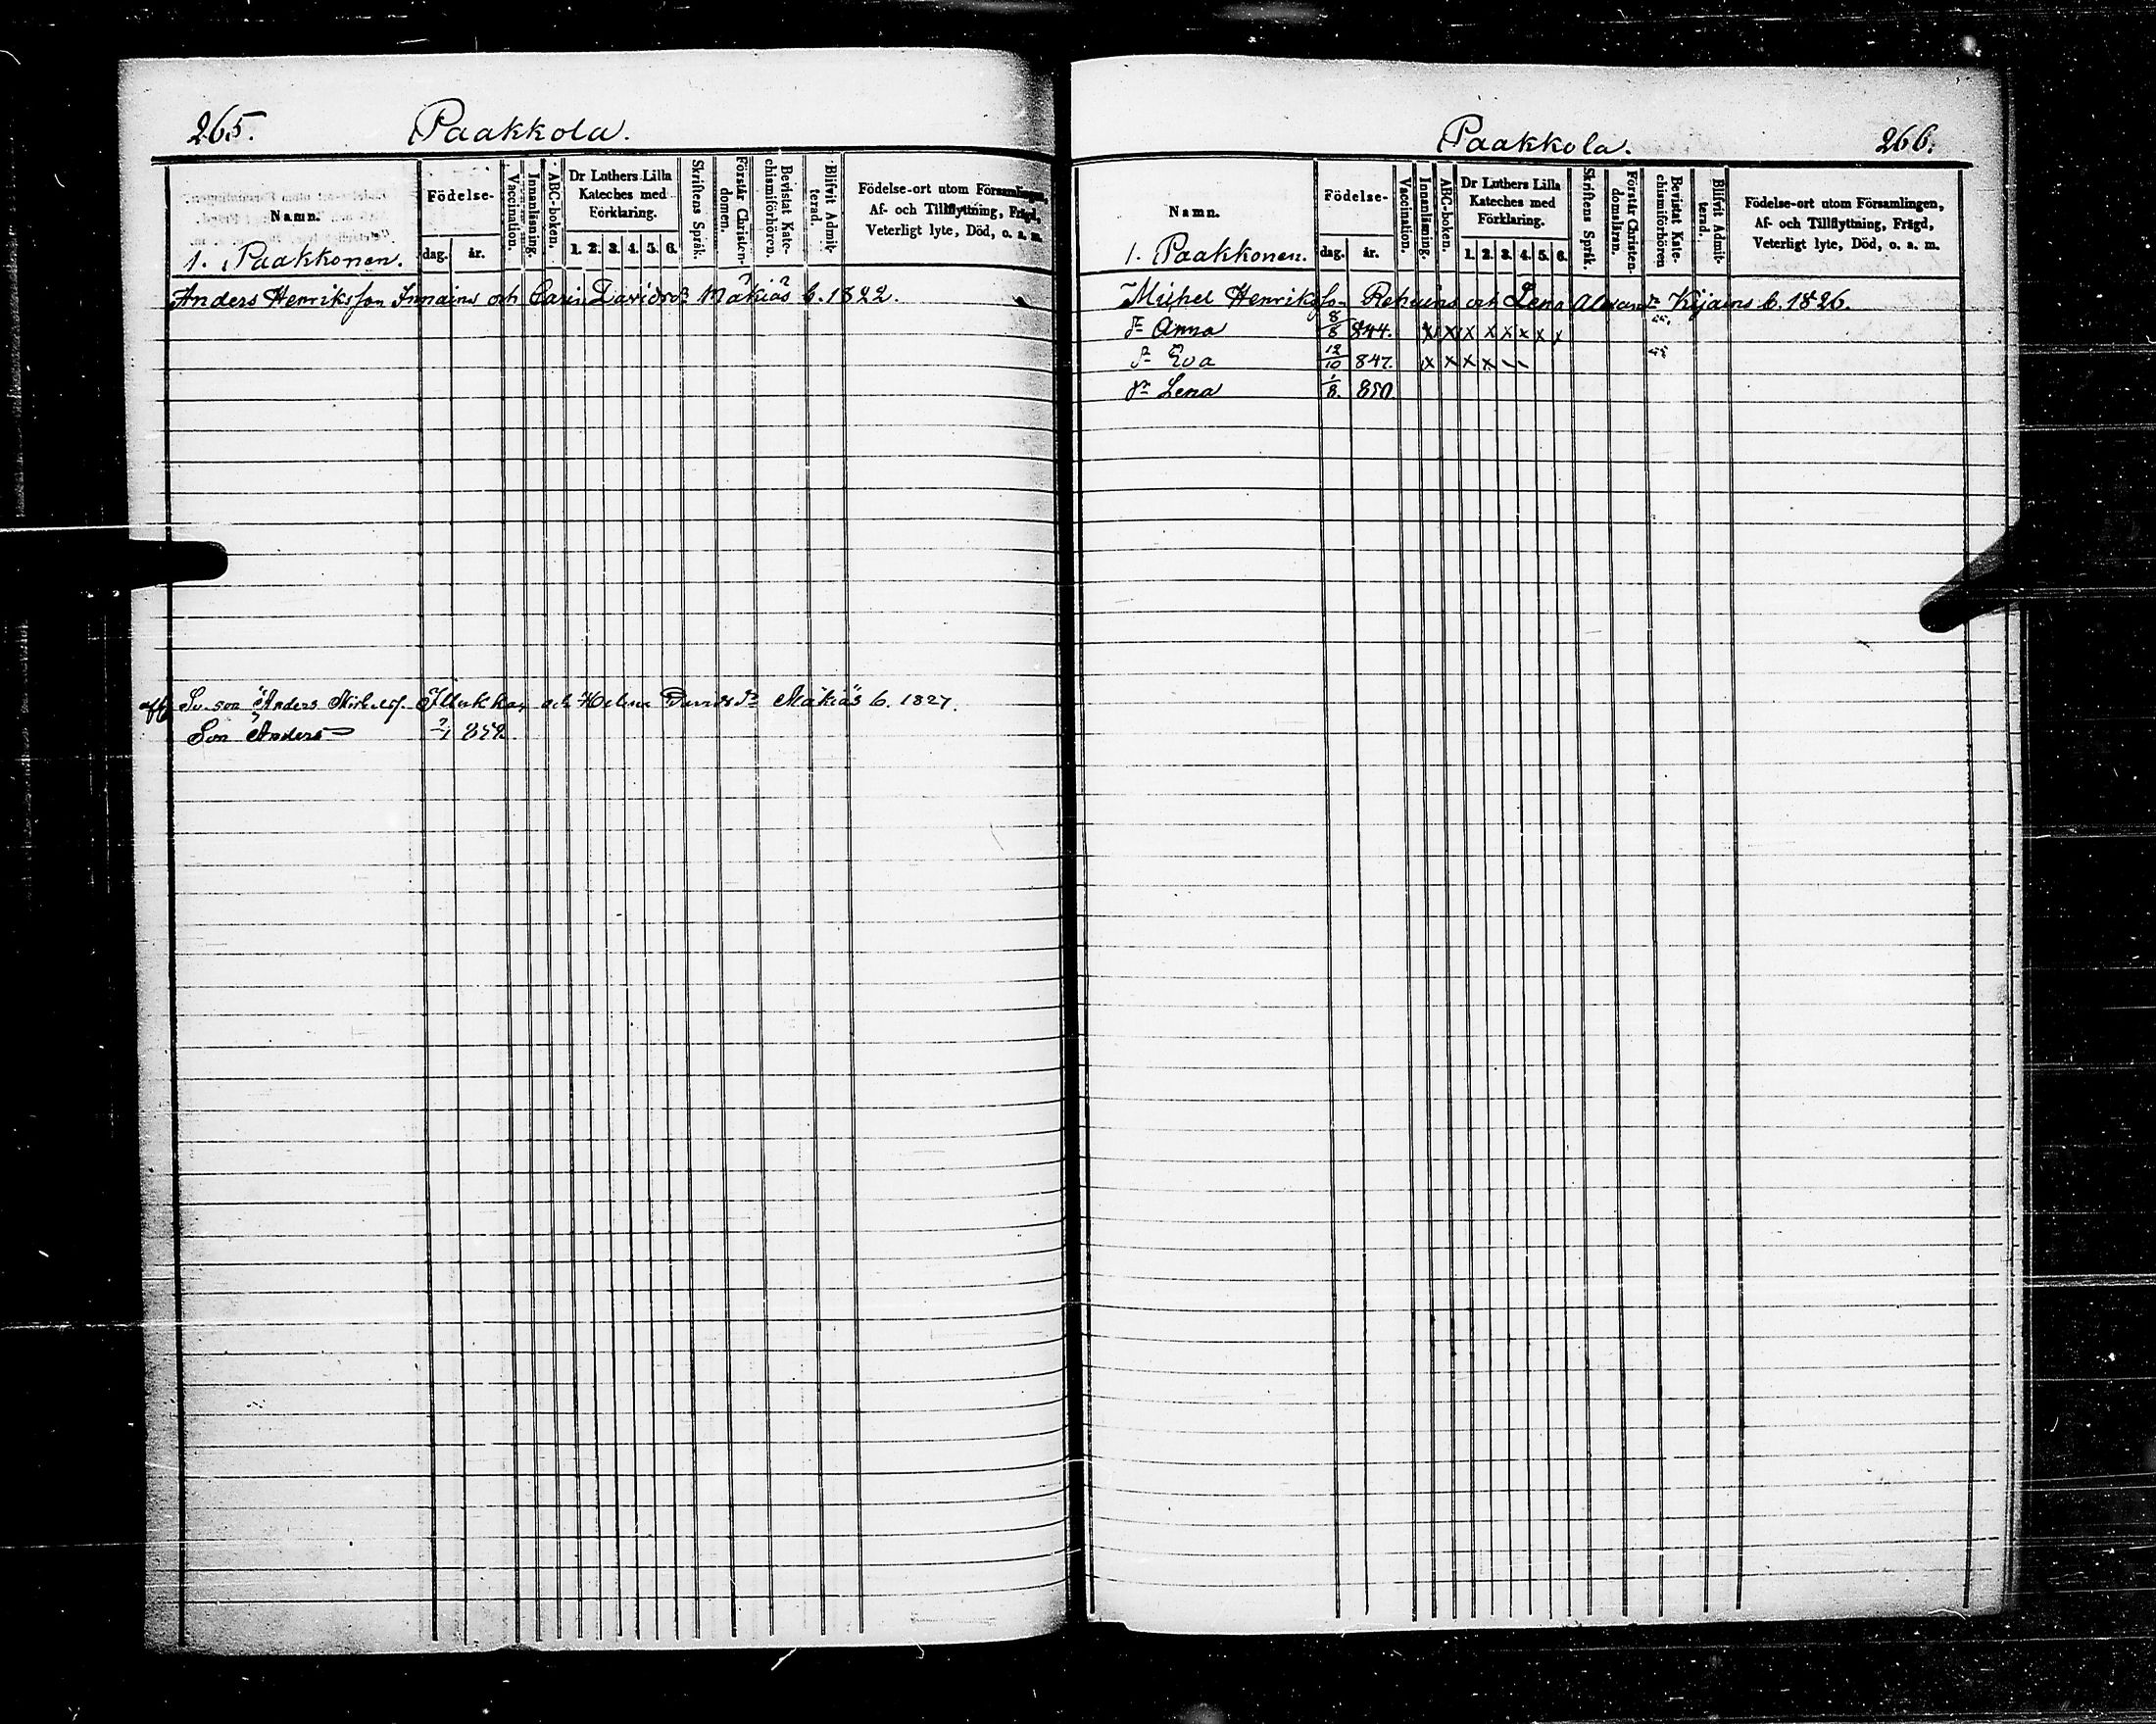 265. Paakkola.
Namn.
Födelse-
dag. år.
Vaccination.
Innanläsning.
ABC-boken.
Dr Luthers Lilla
Kateches med
Förklaring.
1. 2. 3. 4. 5. 6.
Skriftens Språk.
Förstår Christen-
domen.
Bevistat Kate-
chismiförhören.
Blifvit Admit-
terad.
Födelse-ort utom Församlingen,
Af- och Tillflyttning, Frägd,
Veterligt lyte, Död, o. a. m.
1. Paakkonen.
Anders Henriksson Innains och Carin Davidsdr Mäkiäs b. 1822.
Sv. son Anders och Helena Davidsdr Mäkiäs b. 1827.
Son Anders 2/1 859.
Paakkola. 266.
Namn.
Födelse-
dag. år.
Vaccination.
Innanläsning.
ABC-boken.
Dr Luthers Lilla
Kateches med
Förklaring.
1. 2. 3. 4. 5. 6.
Skriftens Språk.
Förstår Christen-
domslären.
Bevistat Kate-
chismiförhören
Blifvit Admit-
terad.
Födelse-ort utom Församlingen,
Af- och Tillflyttning, Frägd,
Veterligt lyte, Död, o. a. m.
1. Paakkonen.
Michel Henriksson och Lena b. 1826.
dr Anna 8/8 844. x x x x x x x x
dr Eva 12/10 847. x x x x
dr Lena 1/8. 850